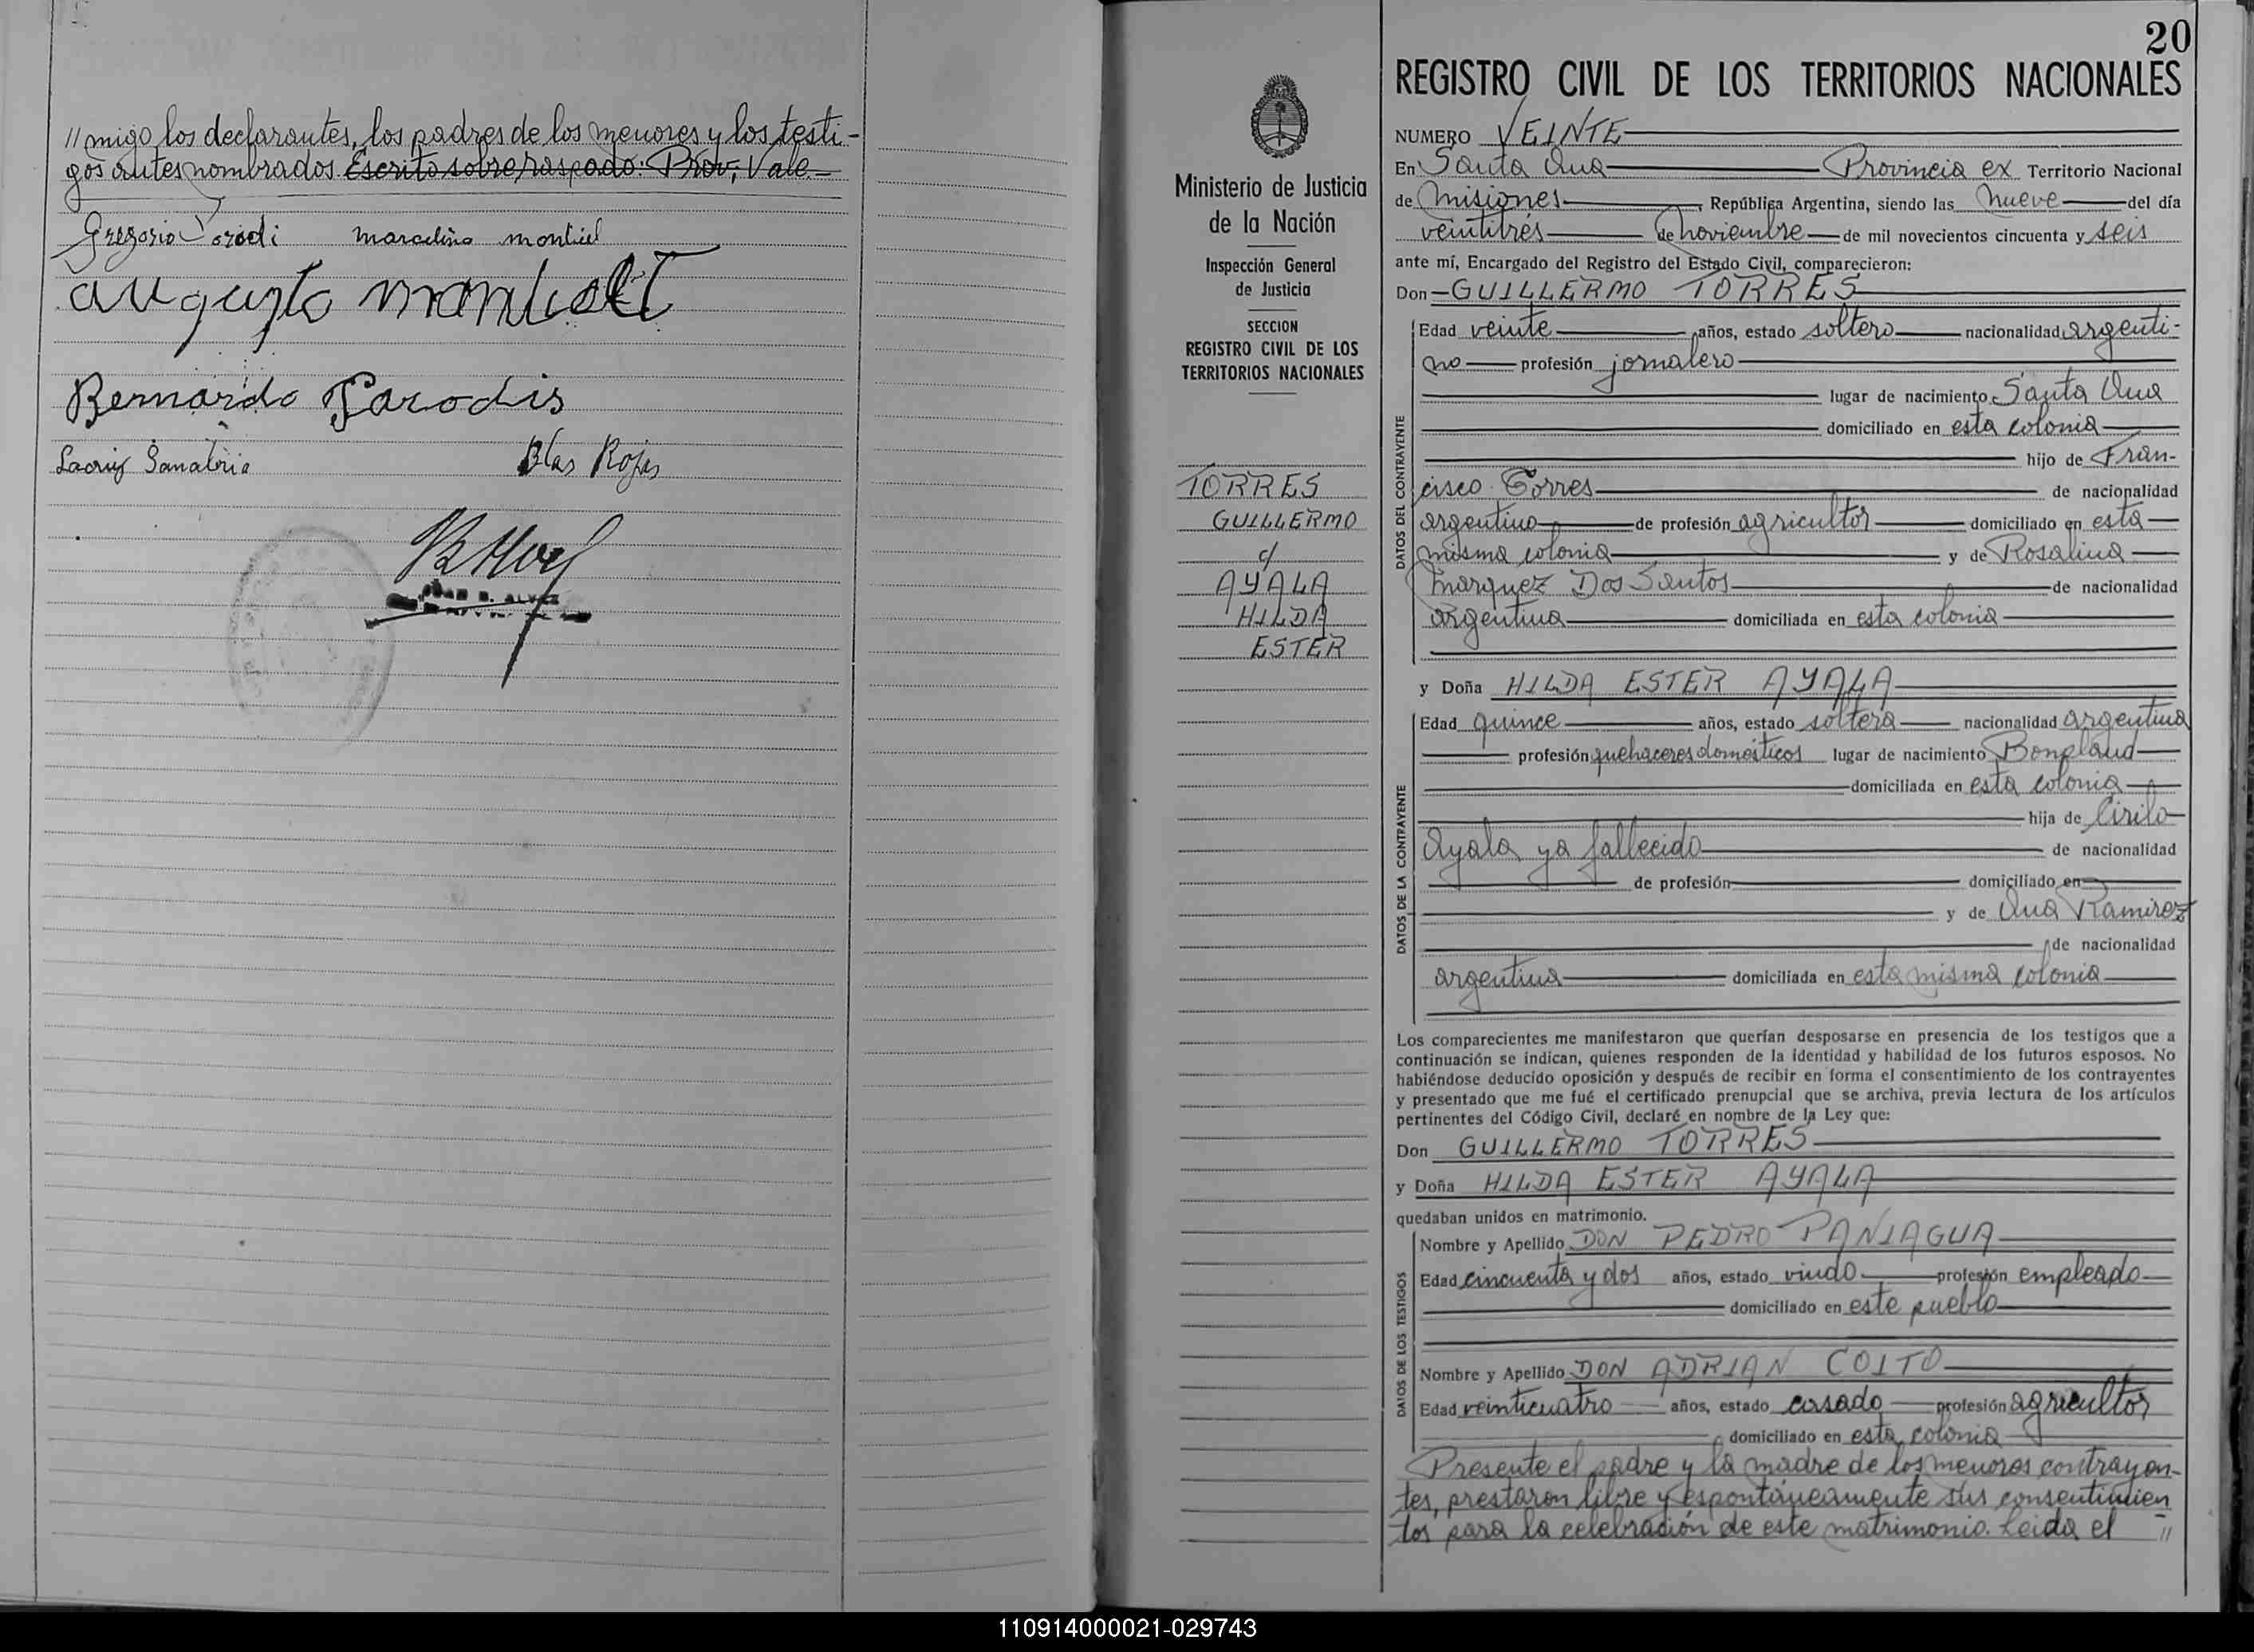 // migo los declarantes, los padres de los menores y los testi-
gos antes nombrados. Escrito sobre raspado: Prov; Vale.-
Gregorio Parodi marcelino montiel
augusto
Bernardo Parodis
Sanabria Blas Rojas
JUAN B. ALVEZ
20
Ministerio de Justicia
de la Nación
Inspección General
de Justicia
SECCION
REGISTRO CIVIL DE LOS
TERRITORIOS NACIONALES
TORRES
GUILLERMO
c/
AYALA
HILDA
ESTER
REGISTRO CIVIL DE LOS TERRITORIOS NACIONALES
NUMERO VEINTE
En Santa Ana Provincia ex Territorio Nacional
de Misiones, República Argentina, siendo las nueve del día
veintitrés de noviembre de mil novecientos cincuenta y seis
ante mí, Encargado del Registro del Estado Civil, comparecieron:
Don GUILLERMO TORRES
DATOS DEL CONTRAYENTE
Edad veinte años, estado soltero nacionalidad argenti-
no profesión jornalero
lugar de nacimiento Santa Ana
domiciliado en esta colonia
hijo de Fran-
cisco Torres de nacionalidad
argentino de profesión agricultor domiciliado en esta
misma colonia y de Rosalina
Marquez Dos Santos de nacionalidad
argentina domiciliada en esta colonia
y Doña HILDA ESTER AYALA
DATOS DE LA CONTRAYENTE
Edad quince años, estado soltera nacionalidad argentina
profesión quehaceres domésticos lugar de nacimiento Bonpland
domiciliada en esta colonia
hija de Cirilo
Ayala ya fallecido de nacionalidad
de profesión domiciliado en
y de Ana Ramirez
de nacionalidad
argentina domiciliada en esta misma colonia
Los comparecientes me manifestaron que querían desposarse en presencia de los testigos que a
continuación se indican, quienes responden de la identidad y habilidad de los futuros esposos. No
habiéndose deducido oposición y después de recibir en forma el consentimiento de los contrayentes
y presentado que me fué el certificado prenupcial que se archiva, previa lectura de los artículos
pertinentes del Código Civil, declaré en nombre de la Ley que:
Don GUILLERMO TORRES
y Doña HILDA ESTER AYALA
quedaban unidos en matrimonio.
DATOS DE LOS TESTIGOS
Nombre y Apellido DON PEDRO PANIAGUA
Edad cincuenta y dos años, estado viudo profesión empleado
domiciliado en este pueblo
Nombre y Apellido DON ADRIAN COITO
Edad veinticuatro años, estado casado profesión agricultor
domiciliado en esta colonia
Presente el padre y la madre de los menores contrayen-
tes, prestaron libre y espontáneamente sus consentimien
tos para la celebración de este matrimonio. Leída el //
110914000021-029743